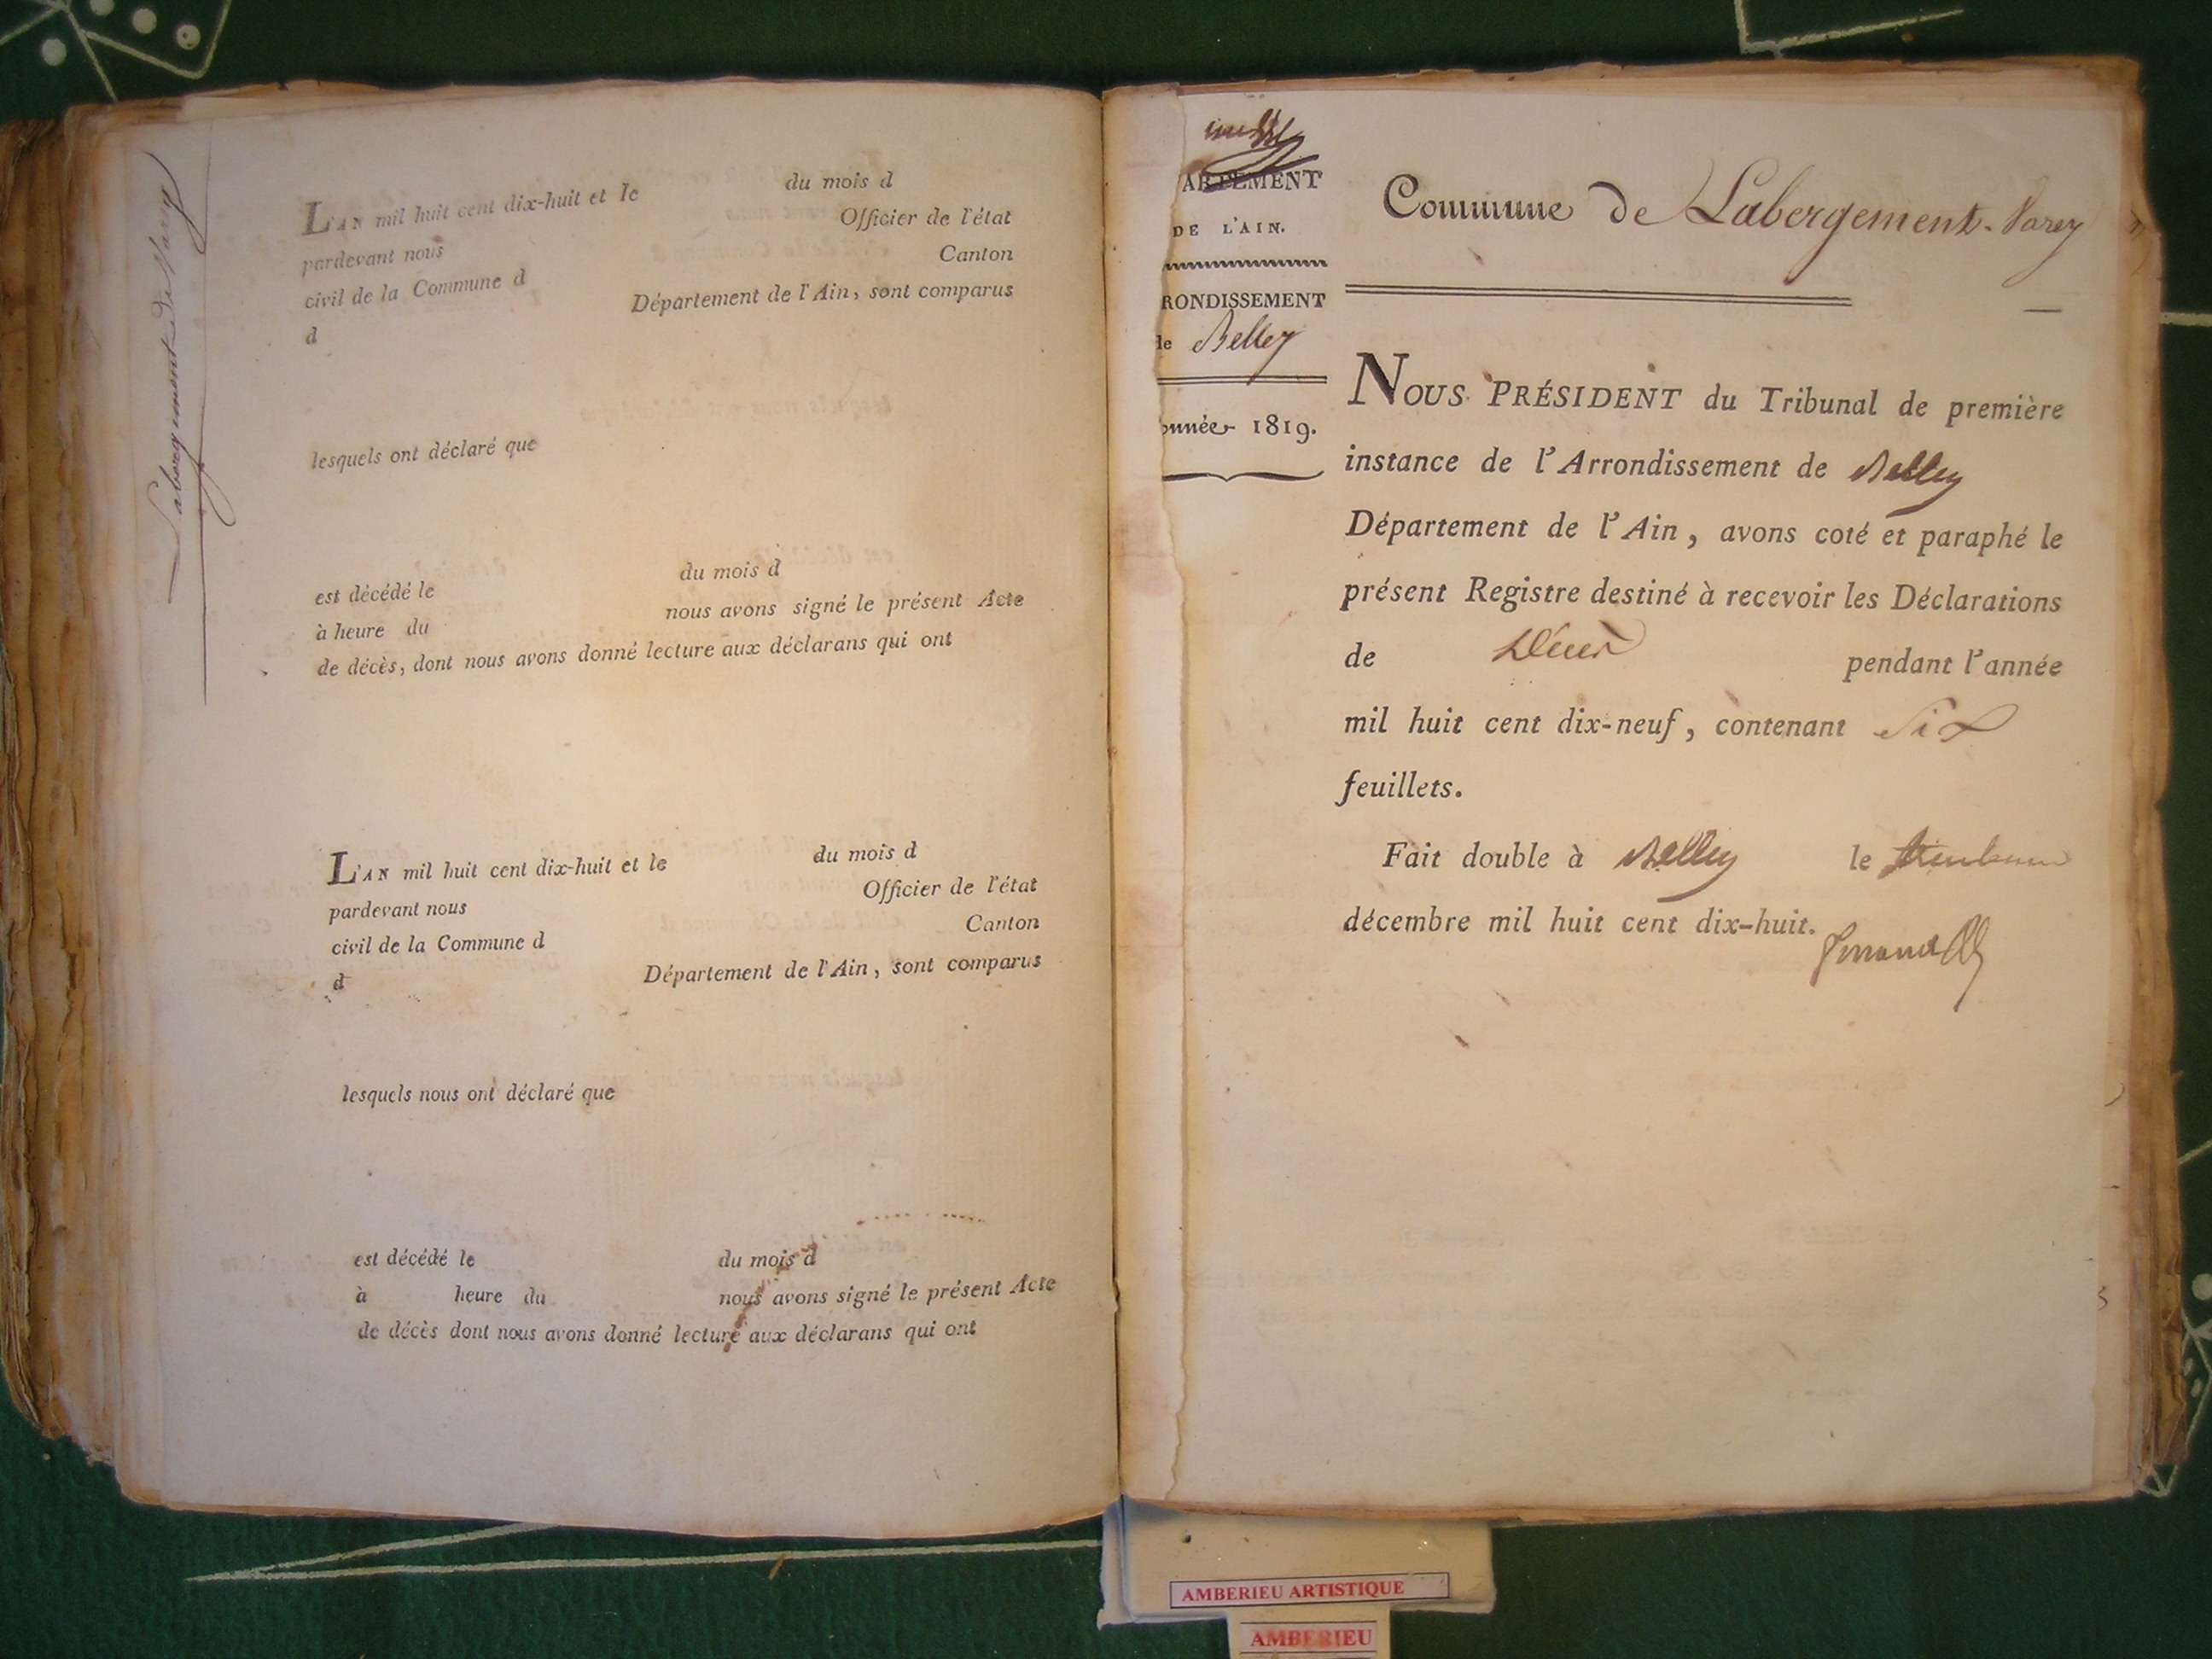 Labergement de Varey
L'AN mil huit cent dix-huit et le du mois d
pardevant nous Officier de l'état
civil de la Commune d Canton
d Département de l'Ain, sont comparus
lesquels ont déclaré que
est décédé le du mois d
à heure du nous avons signé le présent Acte
de décès, dont nous avons donné lecture aux déclarans qui ont
L'AN mil huit cent dix-huit et le du mois d
pardevant nous Officier de l'état
civil de la Commune d Canton
d Département de l'Ain, sont comparus
lesquels nous ont déclaré que
est décédé le du mois d
à heure du nous avons signé le présent Acte
de décès dont nous avons donné lecture aux déclarans qui ont
ARTEMENT
DE L'AIN.
RONDISSEMENT
de Belley
année 1819.
Commune de Labergement-Varey
NOUS PRÉSIDENT du Tribunal de première
instance de l'Arrondissement de Belley
Département de l'Ain, avons coté et paraphé le
présent Registre destiné à recevoir les Déclarations
de Décès pendant l'année
mil huit cent dix-neuf, contenant Six
feuillets.
Fait double à Belley le
décembre mil huit cent dix-huit.
AMBERIEU ARTISTIQUE
AMBERIEU